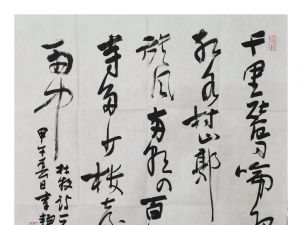 千里莺啼
红水村山郭
旗风南朝四百
寺多少楼台
雨中
杜牧诗一
甲午春日书